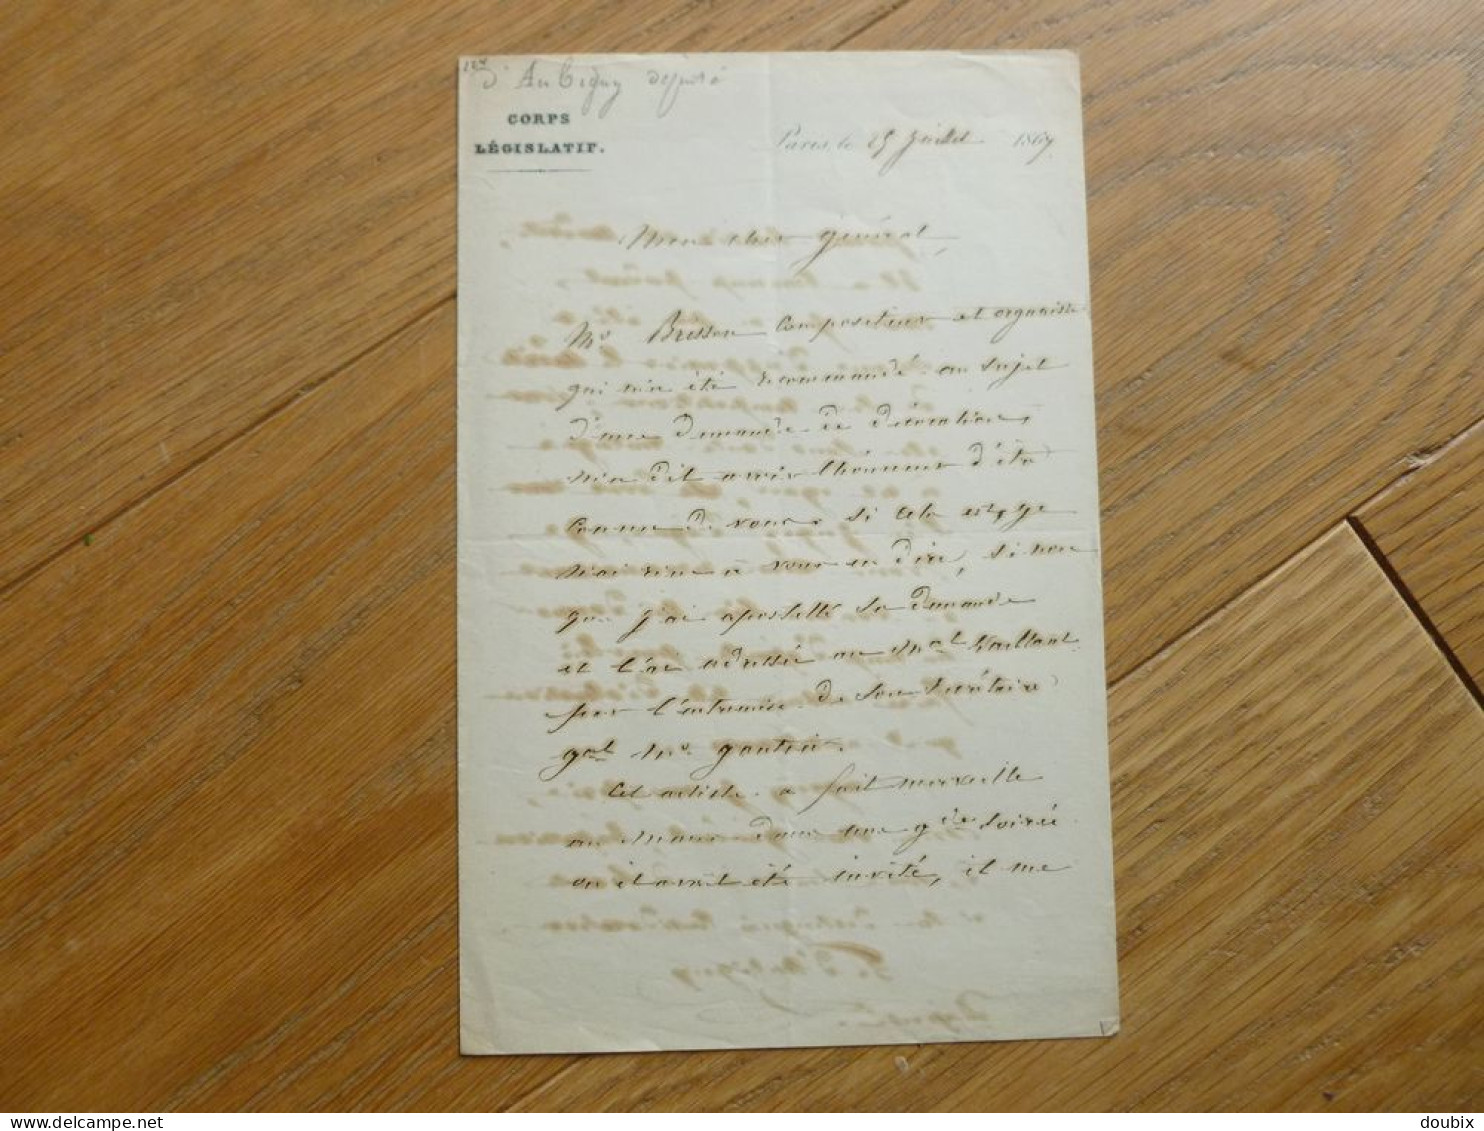 d'Aubigny député
CORPS
LÉGISLATIF.
Paris, le 25 Juillet 1867
Mon cher général,
Mr Brisson Compositeur et organiste
qui m'a été recommandé au sujet
d'une demande de décoration,
m'a dit avoir l'honneur d'être
Connu de vous, si cela est, je
n'ai rien à vous en dire, si non
que j'ai apostillé sa demande
et l'ai adressée au Mal Vaillant
par l'entremise de son Secrétaire
gal Mr gautier.
Cet artiste a fait merveille
au Mans dans une gde soirée
où il avait été invité, il me
delcampe.net
doubix